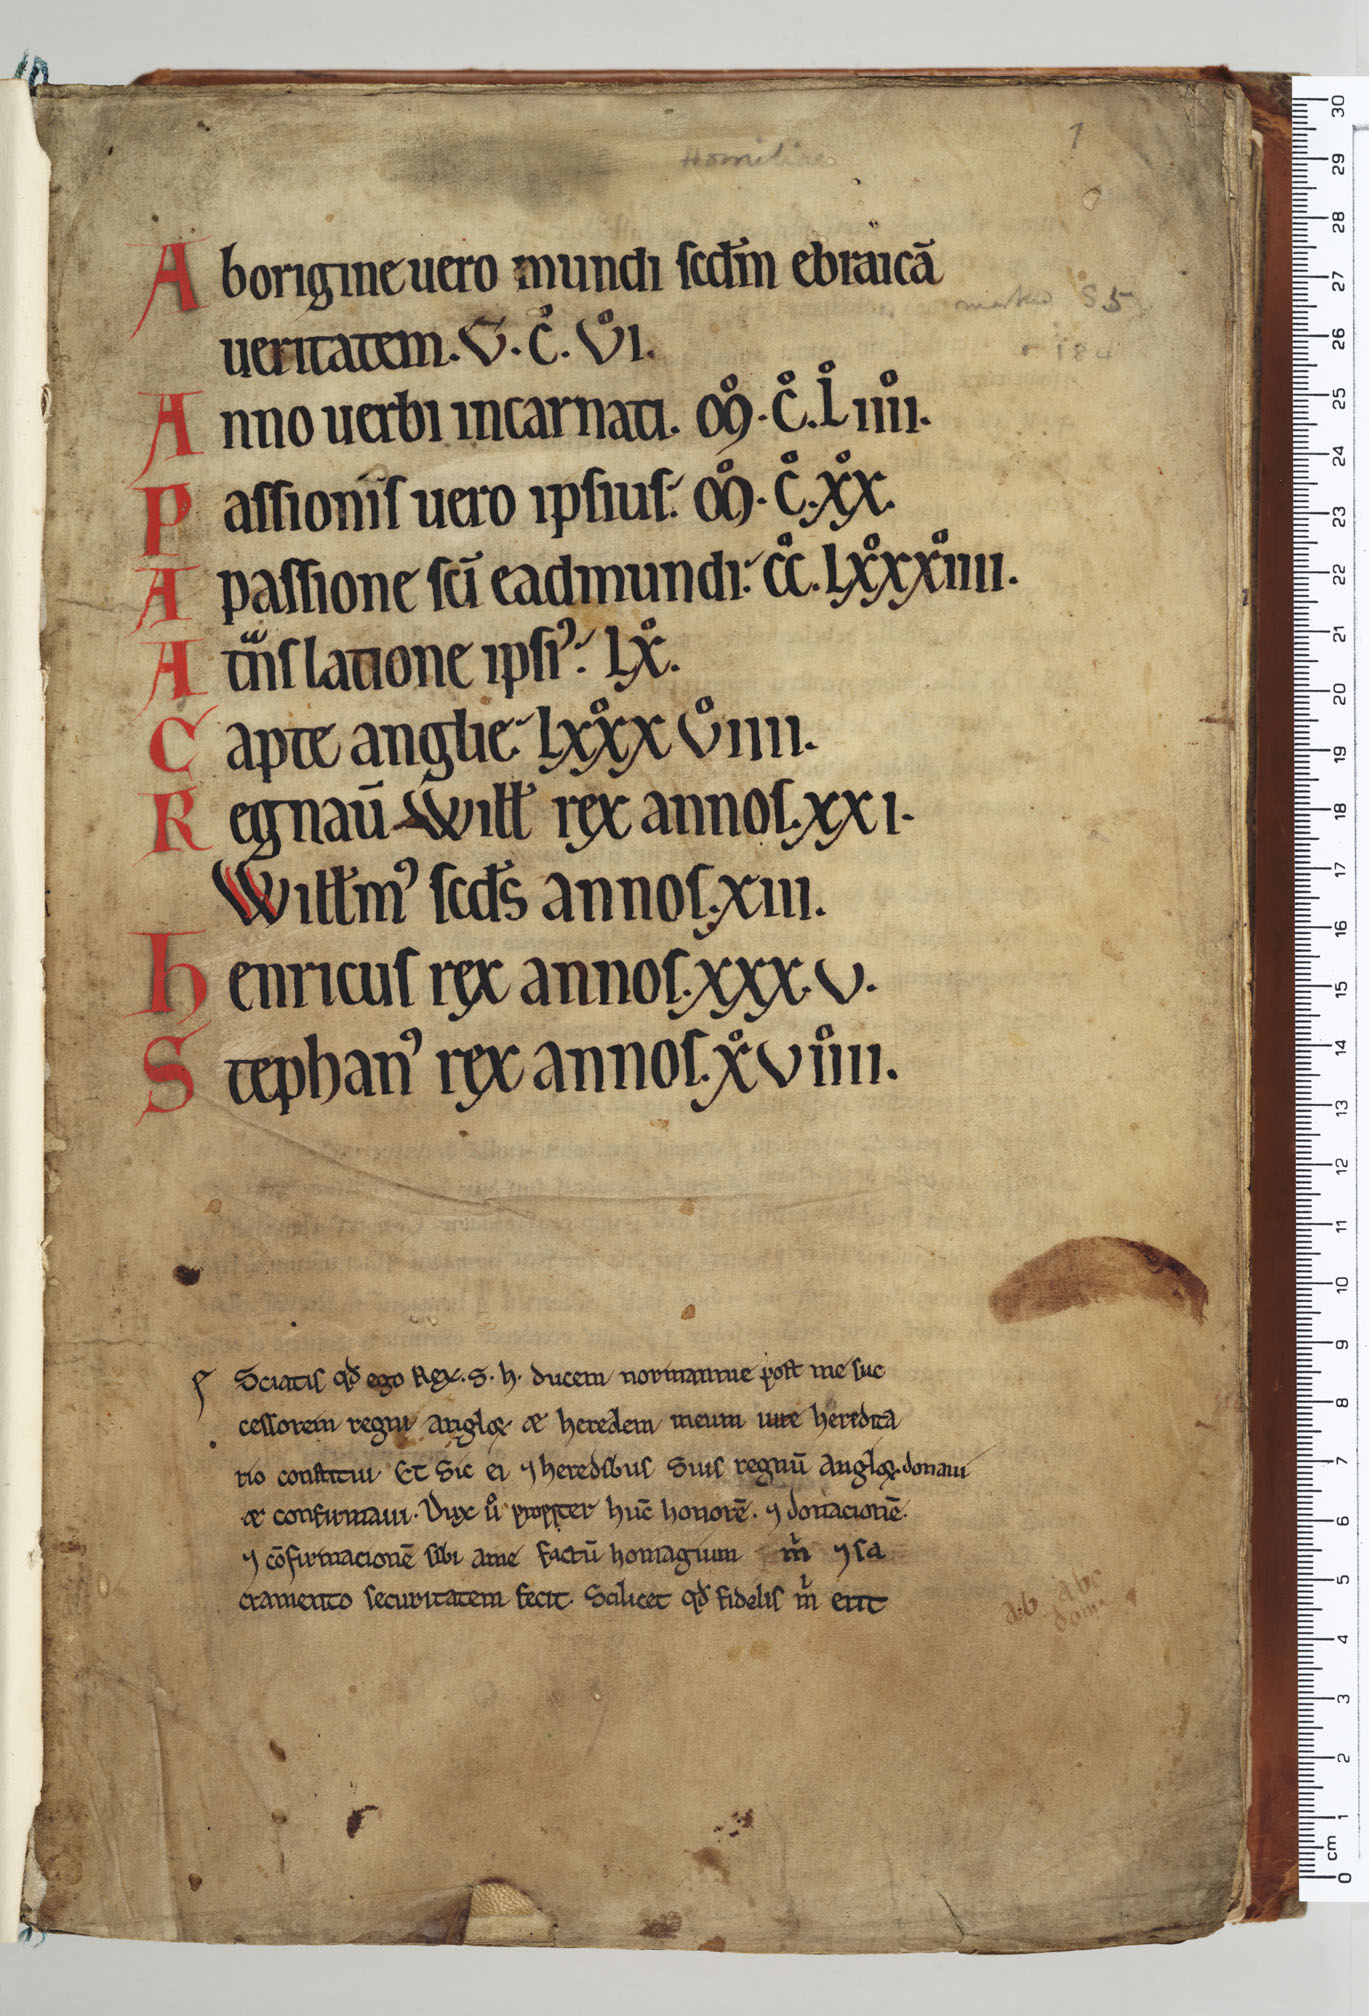 Homiliae
1
A borigine uero mundi scd̄m ebraicā
marked S 5
r 184
ueritatem. V̊. C̊. V̊I.
A nno uerbi incarnati. M̊. C̊. L̊ IIII̊.
P assionis uero ipsius: M̊. C̊. XX̊.
A passione sc̄i eadmundi: CC̊. LXXX̊IIII̊.
A tn̄slatione ipsiꝰ: LX̊.
C apte anglie: LXXX̊ V̊IIII.
R egnau̅ Willꝉ rex annos. XXI.
Willꝉmꝰ scd̄s annos. XIII.
h enricus rex annos. XXX. V.
S tephanꝰ rex annos. X̊VIIII̊.
Sciatis qd̄ ego Rex. S. h. ducem normannie post me suc
cessorem regni angloꝝ æ heredem meum iure heredita
rio constitui Et Sic ei ⁊ heredibus Suis regnū angloꝝ. donaui
æ confirmaui. Dux ů propter hūc honorē. ⁊ donacionē.
⁊ cōfirmacionē sibi ame factū homagium m̄ ⁊ sa
cramento securitatem fecit. Scilicet qd̄ fidelis m̄ erit
ab abc
30
29
28
27
26
25
24
23
22
21
20
19
18
17
16
15
14
13
12
11
10
9
8
7
6
5
4
3
2
1
cm
0